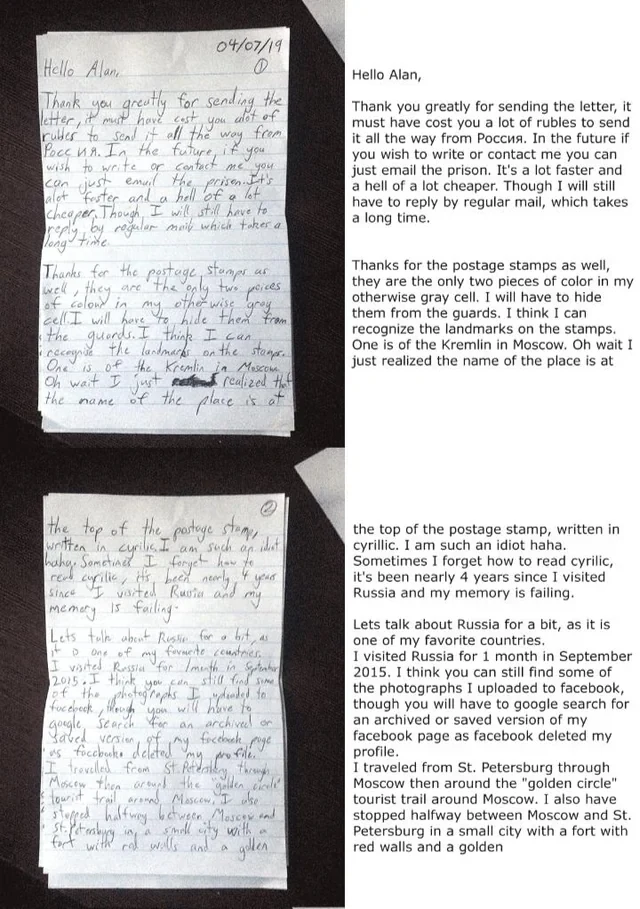 04/07/19
①
Hello Alan,
Thank you greatly for sending the
letter, it must have cost you alot of
rubles to send it all the way from
Росс ия. In the future, if you
wish to write or contact me you
can just email the prison. It's
alot faster and a hell of a lot
cheaper. Though I will still have to
reply by regular mail, which takes a
long time.
Thanks for the postage stamps as
well, they are the only two peices
of colour in my otherwise gray
cell. I will have to hide them from
the guards. I think I can
recognise the landmarks on the stamps.
One is of the Kremlin in Moscow.
Oh wait I just realized that
the name of the place is at
Hello Alan,
Thank you greatly for sending the letter, it
must have cost you a lot of rubles to send
it all the way from Россия. In the future if
you wish to write or contact me you can
just email the prison. It's a lot faster and
a hell of a lot cheaper. Though I will still
have to reply by regular mail, which takes
a long time.
Thanks for the postage stamps as well,
they are the only two pieces of color in my
otherwise gray cell. I will have to hide
them from the guards. I think I can
recognize the landmarks on the stamps.
One is of the Kremlin in Moscow. Oh wait I
just realized the name of the place is at
②
the top of the postage stamp,
written in cyrilic. I am such an idiot
haha. Sometimes I forget how to
read cyrilic, it's been nearly 4 years
since I visited Russia and my
memory is failing.
Lets talk about Russia for a bit, as
it is one of my favourite countries.
I visited Russia for 1 month in September
2015. I think you can still find some
of the photographs I uploaded to
facebook, though you will have to
google search for an archived or
saved version of my facebook page
as facebook deleted my profile.
I travelled from St. Petersburg through
Moscow then around the "golden circle"
tourist trail around Moscow. I also
stopped halfway between Moscow and
St. Petersburg in a small city with a
fort with red walls and a golden
the top of the postage stamp, written in
cyrillic. I am such an idiot haha.
Sometimes I forget how to read cyrilic,
it's been nearly 4 years since I visited
Russia and my memory is failing.
Lets talk about Russia for a bit, as it is
one of my favorite countries.
I visited Russia for 1 month in September
2015. I think you can still find some of
the photographs I uploaded to facebook,
though you will have to google search for
an archived or saved version of my
facebook page as facebook deleted my
profile.
I traveled from St. Petersburg through
Moscow then around the "golden circle"
tourist trail around Moscow. I also have
stopped halfway between Moscow and St.
Petersburg in a small city with a fort with
red walls and a golden